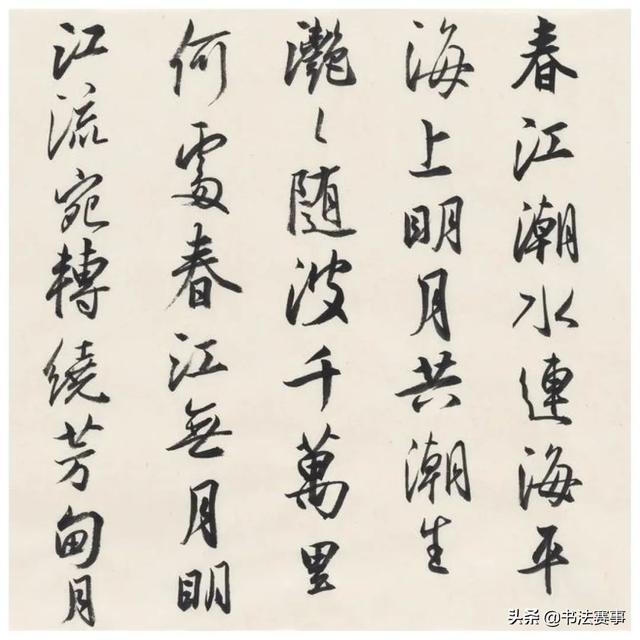 春江潮水連海平
海上明月共潮生
灔〻随波千萬里
何處春江無月明
江流宛轉繞芳甸月
头条 @书法赛事